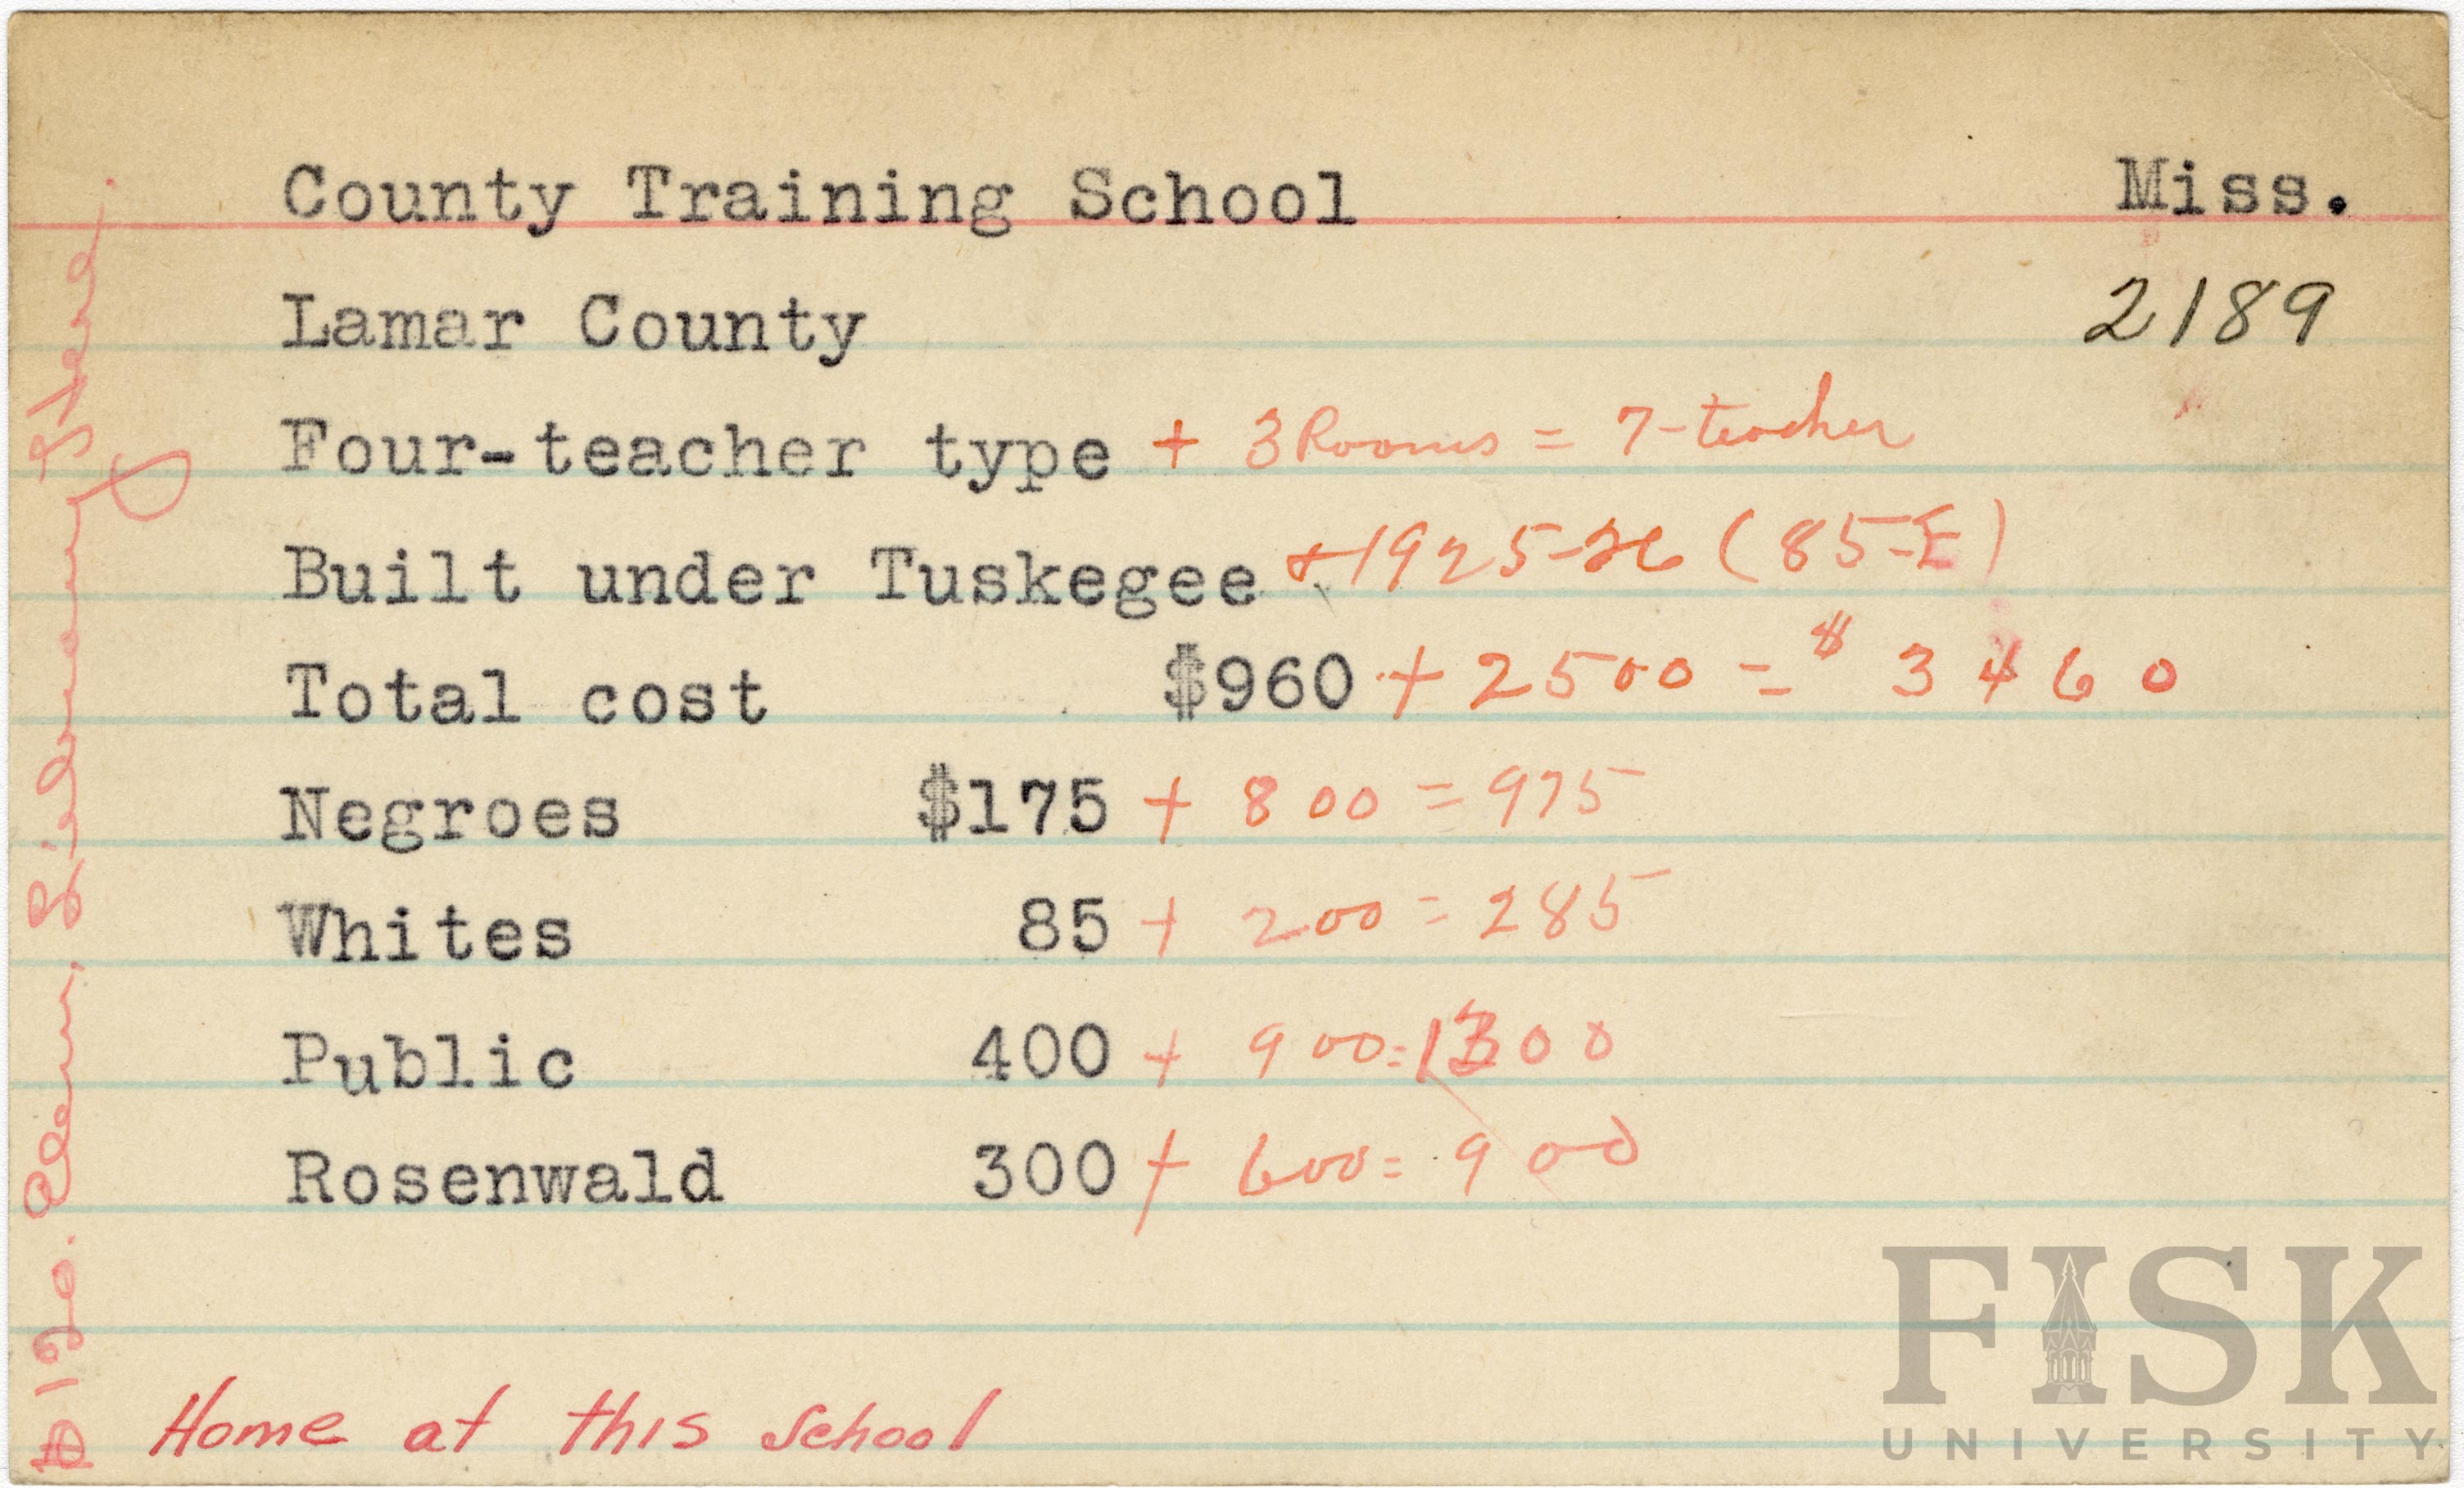 County Training School Miss.
Lamar County 2189
Four-teacher type + 3 Rooms = 7-teacher
Built under Tuskegee + 1925-26 (85-E)
Total cost $960 + 2500 = $3460
Negroes $175 + 800 = 975
Whites 85 + 200 = 285
Public 400 + 900 = 1300
Rosenwald 300 + 600 = 900
Home at this School
$120. Elem. Library Here.
FISK
UNIVERSITY